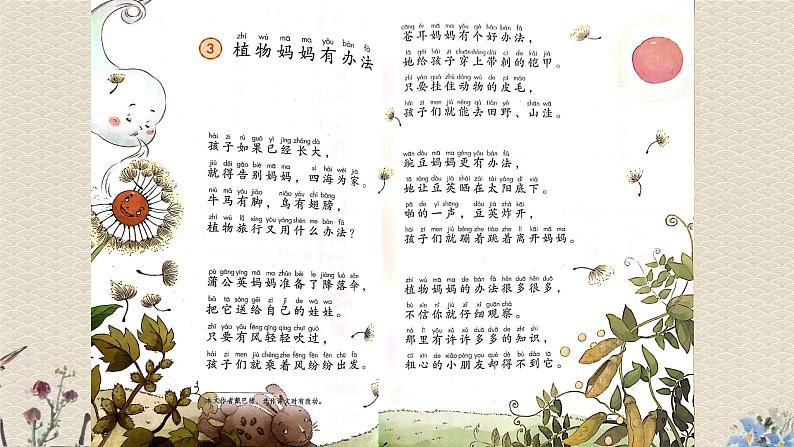 zhí wù mā ma yǒu bàn fǎ
3 植物妈妈有办法
hái zi rú guǒ yǐ jīng zhǎng dà
孩子如果已经长大，
jiù děi gào bié mā ma sì hǎi wéi jiā
就得告别妈妈，四海为家。
niú mǎ yǒu jiǎo niǎo yǒu chì bǎng
牛马有脚，鸟有翅膀，
zhí wù lǚ xíng yòu yòng shén me bàn fǎ
植物旅行又用什么办法？
pú gōng yīng mā ma zhǔn bèi le jiàng luò sǎn
蒲公英妈妈准备了降落伞，
bǎ tā sòng gěi zì jǐ de wá wa
把它送给自己的娃娃。
zhǐ yào yǒu fēng qīng qīng chuī guò
只要有风轻轻吹过，
hái zi men jiù chéng zhe fēng fēn fēn chū fā
孩子们就乘着风纷纷出发。
本文作者戴巴棣，选作课文时有改动。
cāng ěr mā ma yǒu gè hǎo bàn fǎ
苍耳妈妈有个好办法，
tā gěi hái zi chuān shàng dài cì de kǎi jiǎ
她给孩子穿上带刺的铠甲。
zhǐ yào guà zhù dòng wù de pí máo
只要挂住动物的皮毛，
hái zi men jiù néng qù tián yě shān wā
孩子们就能去田野、山洼。
wān dòu mā ma gèng yǒu bàn fǎ
豌豆妈妈更有办法，
tā ràng dòu jiá shài zài tài yáng dǐ xià
她让豆荚晒在太阳底下，
pā de yì shēng dòu jiá zhà kāi
啪的一声，豆荚炸开，
hái zi men jiù bèng zhe tiào zhe lí kāi mā ma
孩子们就蹦着跳着离开妈妈。
zhí wù mā ma de bàn fǎ hěn duō hěn duō
植物妈妈的办法很多很多，
bú xìn nǐ jiù zǐ xì guān chá
不信你就仔细观察。
nà lǐ yǒu xǔ xǔ duō duō de zhī shi
那里有许许多多的知识，
cū xīn de xiǎo péng yǒu què dé bú dào tā
粗心的小朋友却得不到它。